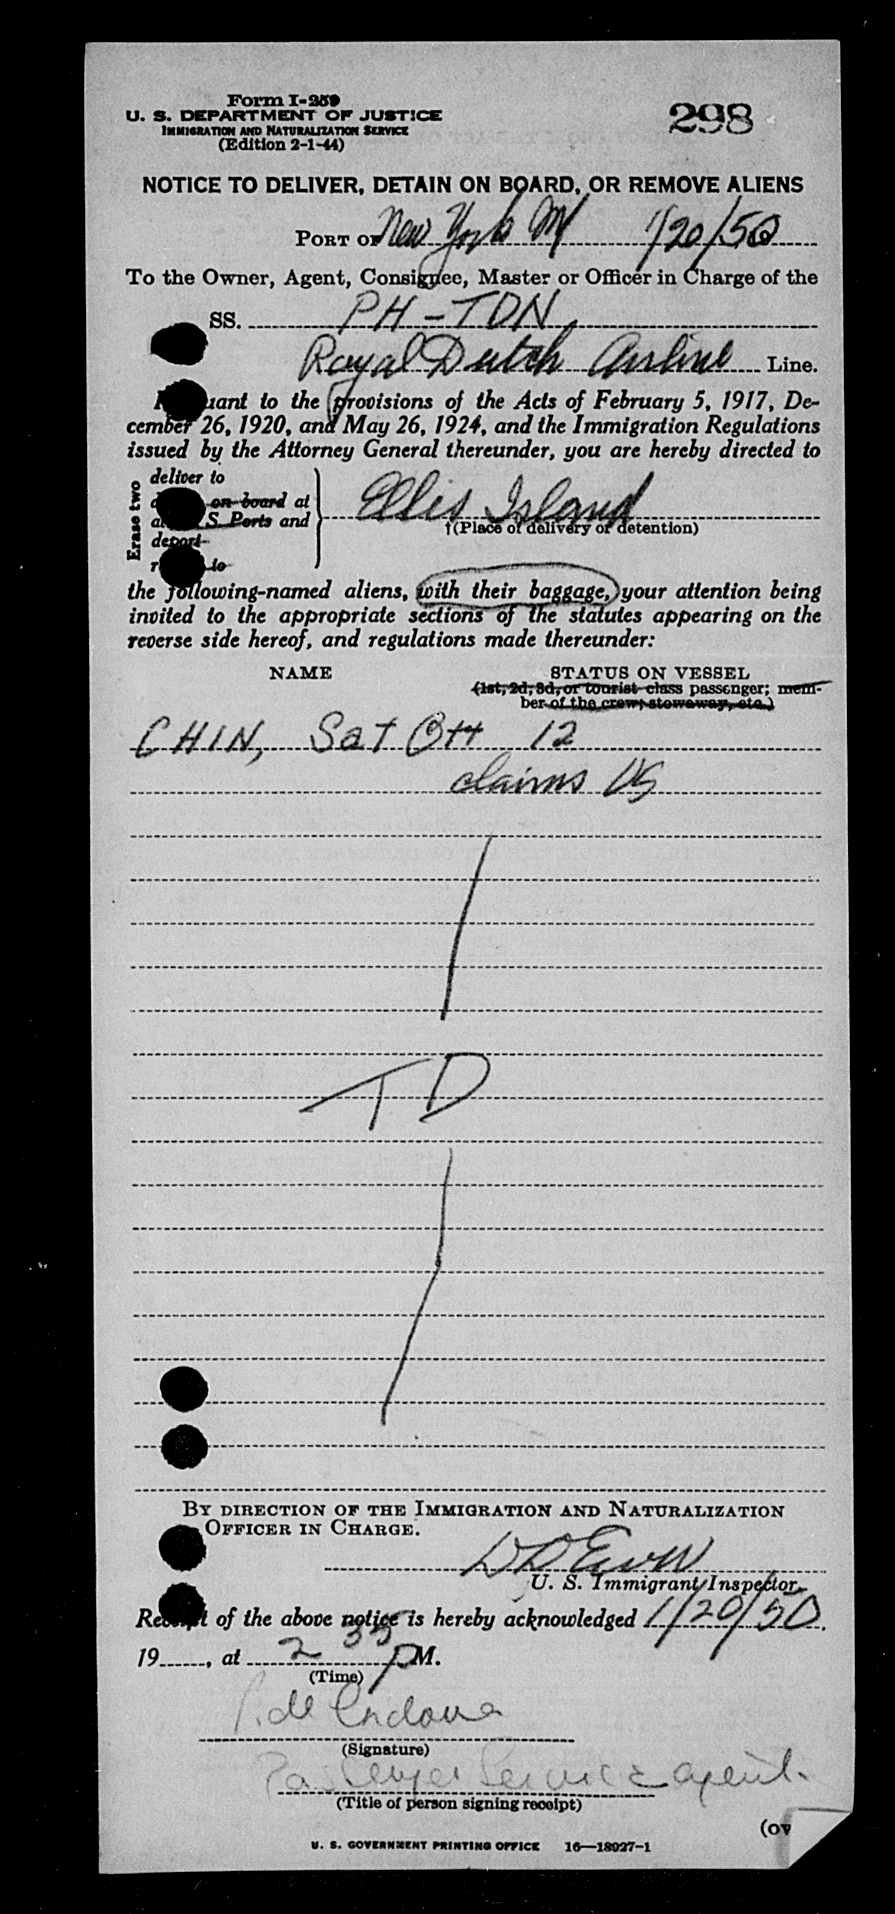 Form I-259
298
U. S. DEPARTMENT OF JUSTICE
IMMIGRATION AND NATURALIZATION SERVICE
(Edition 2-1-44)
NOTICE TO DELIVER, DETAIN ON BOARD, OR REMOVE ALIENS
PORT OF New York 1/20/50
To the Owner, Agent, Consignee, Master or Officer in Charge of the
SS. PH-TDN
Royal Dutch Airline Line.
Pursuant to the provisions of the Acts of February 5, 1917, De-
cember 26, 1920, and May 26, 1924, and the Immigration Regulations
issued by the Attorney General thereunder, you are hereby directed to
Erase two
deliver to
on board at
S Ports and
deport
to
Ellis Island
†(Place of delivery or detention)
the following-named aliens, with their baggage, your attention being
invited to the appropriate sections of the statutes appearing on the
reverse side hereof, and regulations made thereunder:
NAME STATUS ON VESSEL
(1st, 2d, 3d, or tourist class passenger; mem-
ber of the crew; stowaway, etc.)
CHIN, Sat 12
claims US
TD
BY DIRECTION OF THE IMMIGRATION AND NATURALIZATION
OFFICER IN CHARGE.
U. S. Immigrant Inspector.
Receipt of the above notice is hereby acknowledged 1/20/50,
19 , at 2 35 P M.
(Time)
(Signature)
Passenger Service Agent.
(Title of person signing receipt)
(ov
U. S. GOVERNMENT PRINTING OFFICE 16—18927-1